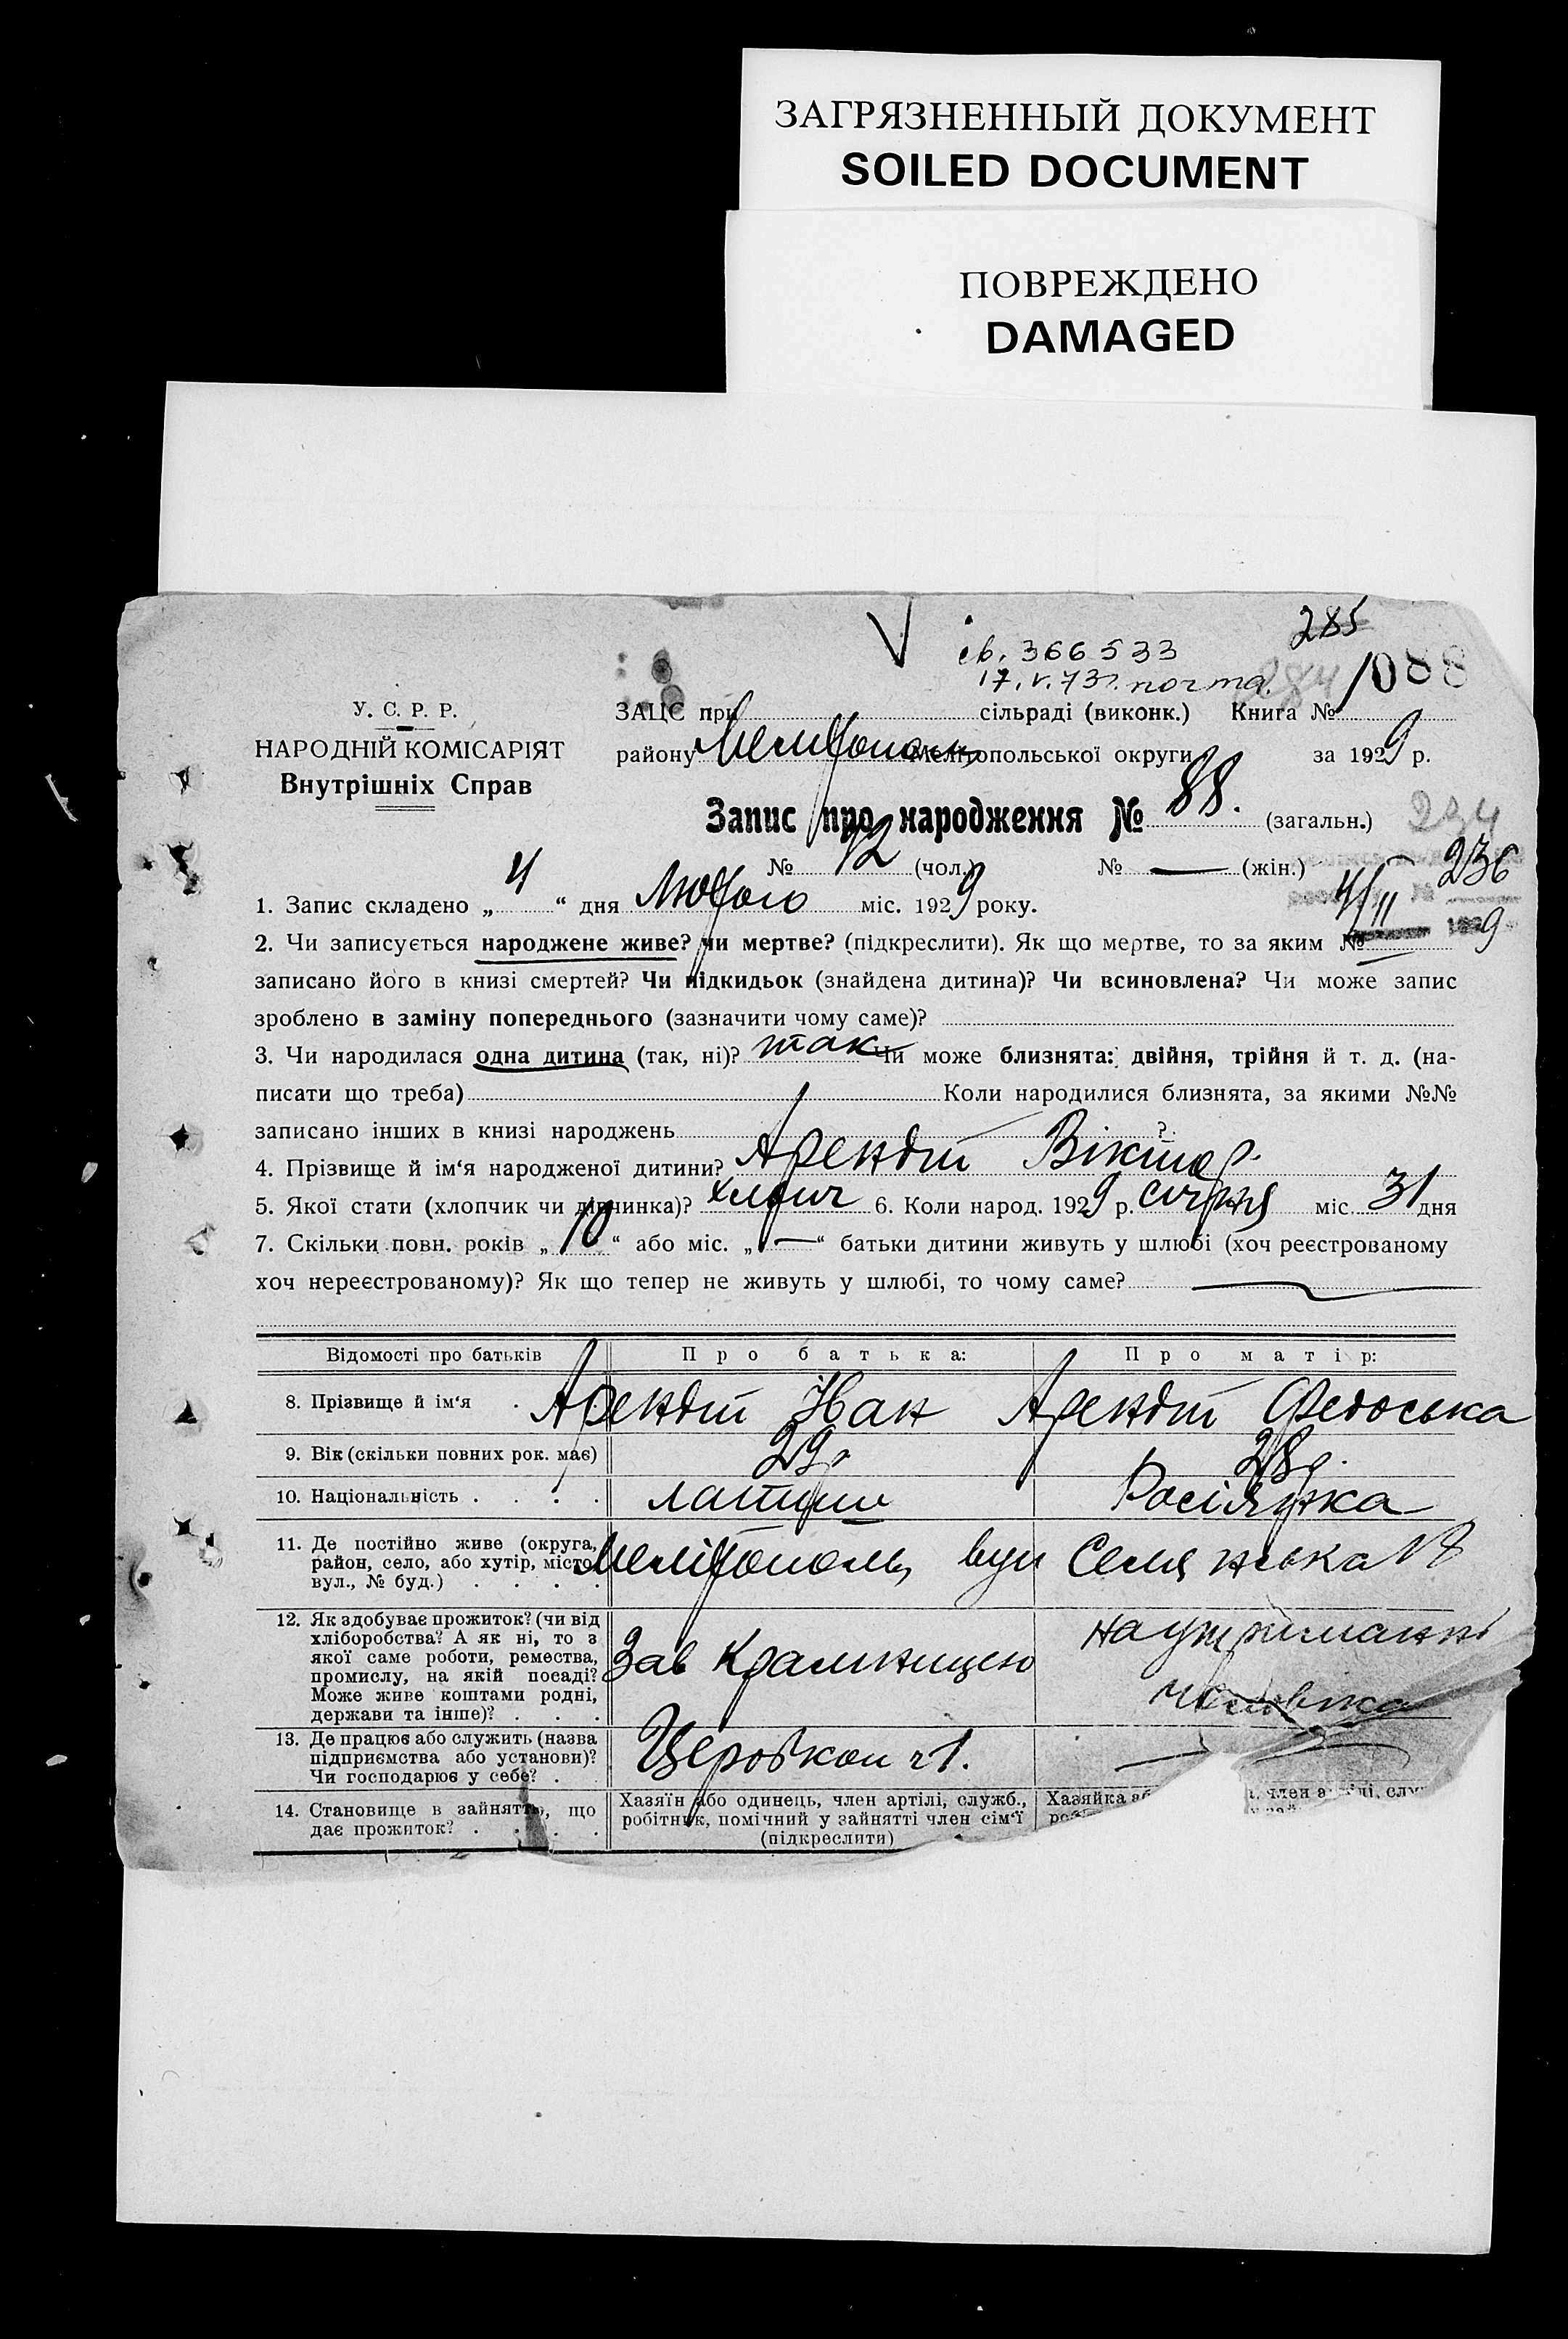 ЗАГРЯЗНЕННЫЙ ДОКУМЕНТ
SOILED DOCUMENT
ПОВРЕЖДЕНО
DAMAGED
285
св. 366533
17.V.73г.
1088
У. С. Р. Р.
НАРОДНІЙ КОМІСАРІЯТ
Внутрішніх Справ
ЗАЦС при сільраді (виконк.) Книга №
району Мелітополь Мелітопольської округи за 1929 р.
Запис про народження № 88. (загальн.)
234
№ 42 (чол.) № — (жін.)
236
4/II
9
1. Запис складено „4“ дня Лютого міс. 1929 року.
2. Чи записується народжене живе? чи мертве? (підкреслити). Як що мертве, то за яким №
записано його в книзі смертей? Чи підкидьок (знайдена дитина)? Чи всиновлена? Чи може запис
зроблено в заміну попереднього (зазначити чому саме)?
3. Чи народилася одна дитина (так, ні)? так Чи може близнята: двійня, трійня й т. д. (на-
писати що треба) Коли народилися близнята, за якими №№
записано інших в книзі народжень ?
4. Прізвище й ім‘я народженої дитини? Арендт Віктор.
5. Якої стати (хлопчик чи дівчинка)? хлопч 6. Коли народ. 1929 р. січня міс. 31 дня
7. Скільки повн. років „10“ або міс. „—“ батьки дитини живуть у шлюбі (хоч реєстрованому
хоч нереєстрованому)? Як що тепер не живуть у шлюбі, то чому саме? —
Відомості про батьків Про батька: Про матір:
8. Прізвище й ім‘я . Арендт Іван Арендт Федоська
9. Вік (скільки повних рок. має) 29р 28р.
10. Національність . . . . латиш Росіянка
11. Де постійно живе (округа,
район, село, або хутір, місто
вул., № буд.) . . . . Мелітополь, вул
12. Як здобуває прожиток? (чи від
хліборобства? А як ні, то з
якої саме роботи, ремества,
промислу, на якій посаді?
Може живе коштами родні,
держави та інше)? . . .
Зав Крамницею
на утриманні
чоловіка
13. Де працює або служить (назва
підприємства або установи)?
Чи господарює у себе? .
Церобкоп ч1. —
14. Становище в зайнятть, що
дає прожиток? . . . .
Хазяїн або одинець, член артілі, служб.,
робітник, помічний у зайнятті член сім‘ї
(підкреслити)
Хазяйка
член